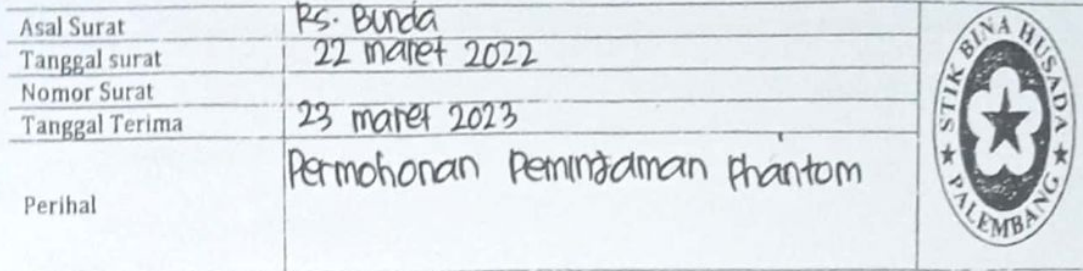 Asal Surat Rs. Bunda
Tanggal surat 22 maret 2022
Nomor Surat
Tanggal Terima 23 maret 2023
Perihal Permohonan Peminjaman Phantom
STIK BINA HUSADA
PALEMBANG